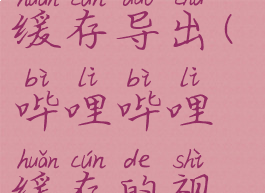 huǎn cún dǎo chū
缓存导出(
bì lī bì lī
哔哩哔哩
huǎn cún de shì
缓存的视